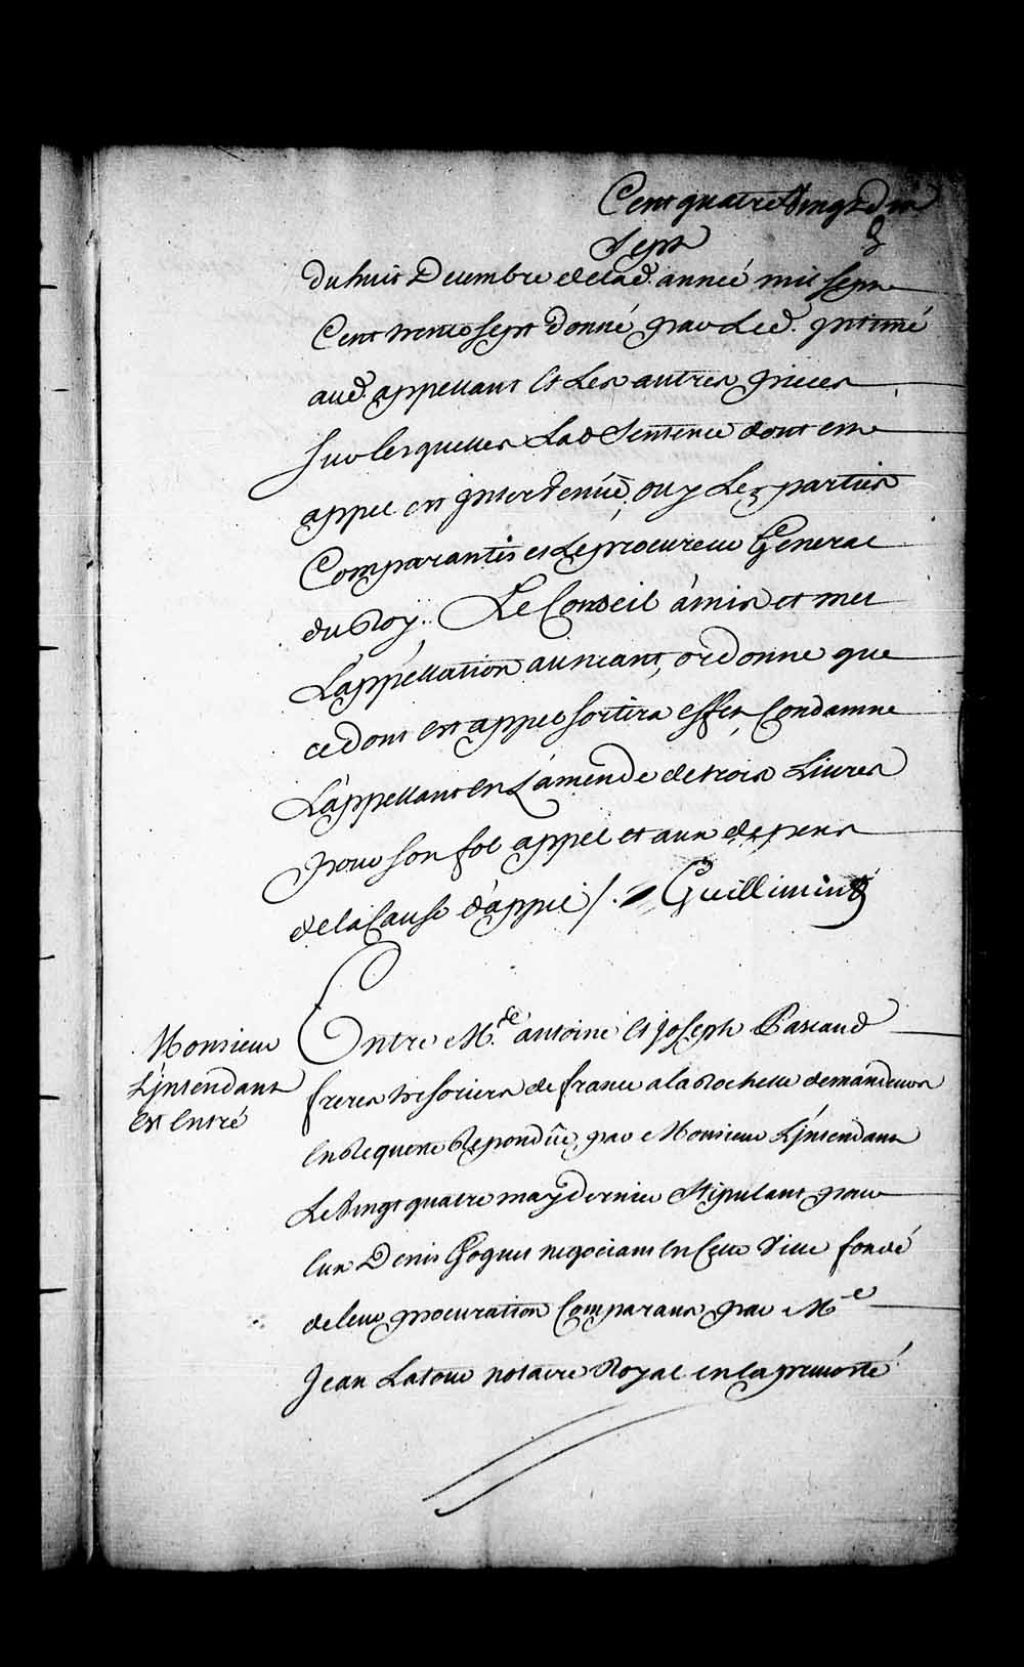 Cent quatre Vingt Dix
Sept
du huit Decembre de lad. année mil sept
Cent trente sept donné par Led. Intimé
aud. appellant Et Les autres pieces
sur lesquelles Lad Sentence dont est
appel est Intervenüe, ouy Les parties
Comparantes et Le procureur General
du Roy. Le Conseil a mis et met
L'appellation au neant, ordonne que
ce dont est appel sortira effet, Condamne
L'appellant En L'amende de trois Livres
pour son fol appel et aux depens
de la Cause d'appel /. Guillimin
Entre M.rs antoine Et Joseph Pascaud
freres tresoriers de france a la Rochelle demandeurs
En Requete Repondüe par Monsieur L'Intendant
Le Vingt quatre may dernier Stipulant pour
Eux Denis Goguet negociant En Cette Ville fondé
de leur procuration Comparant par M.e
Jean Latour notaire Royal en la prevosté
Monsieur
L'Intendant
Est Entré